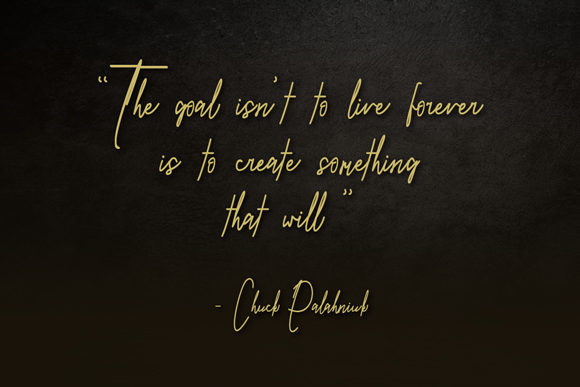 “The goal isn't to live forever
is to create something
that will”
- Chuck Palahniuk